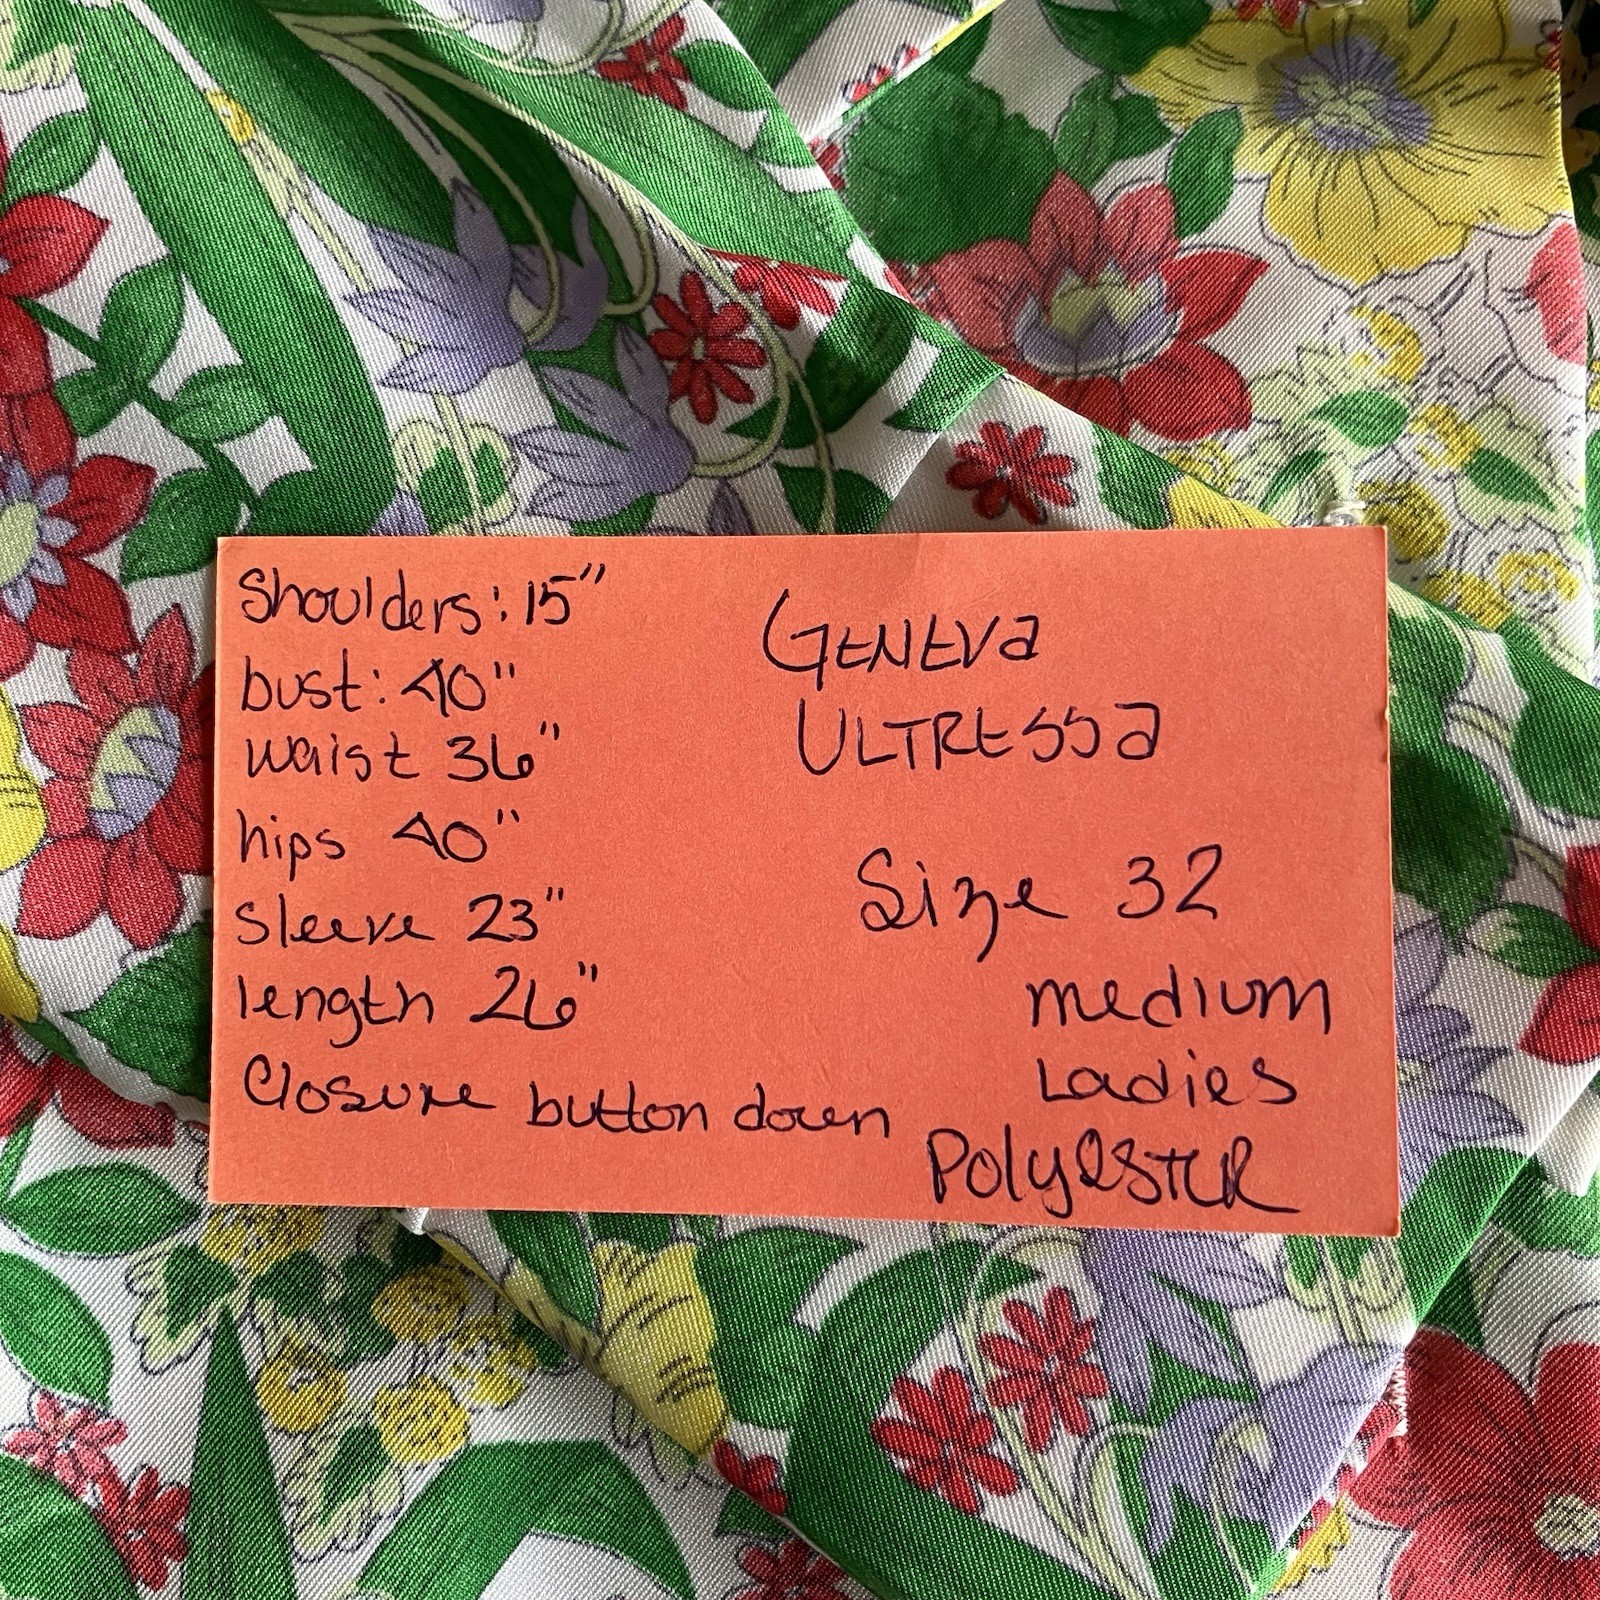 Shoulders: 15"
bust: 40"
waist 36"
hips 40"
Sleeve 23"
length 26"
Closure button down
GENEVa
ULTRESSa
Size 32
medium
Ladies
PolyESTER